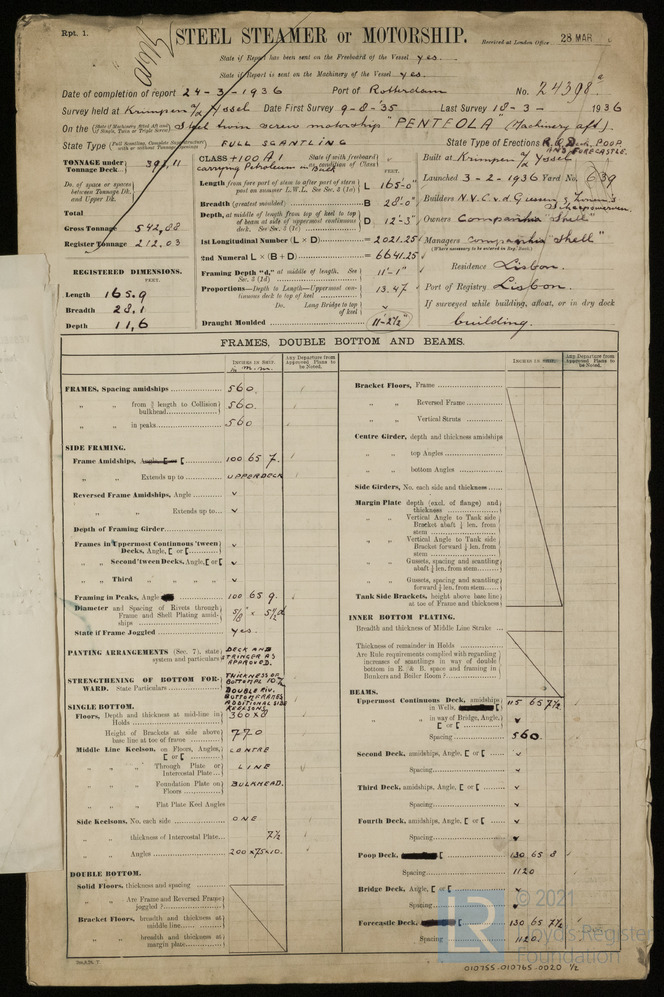 Rpt. 1.
STEEL STEAMER or MOTORSHIP.
Received at London Office 28 MAR
State if Report has been sent on the Freeboard of the Vessel yes.
State if Report is sent on the Machinery of the Vessel yes.
Date of completion of report 24-3-1936 Port of Rotterdam No. 24398
Survey held at Krimpen a/d Yssel Date First Survey 9-8-'35 Last Survey 18-3-1936
On the Steel twin screw motorship "PENTEOLA" (Machinery aft).
State Type FULL SCANTLING State Type of Erections R.Q. Deck, POOP AND FORECASTLE.
TONNAGE under Tonnage Deck 393,11
Do. of space or spaces between Tonnage Dk. and Upper Dk.
Total
Gross Tonnage 542,88
Register Tonnage 212,03
CLASS +100 A1 State if with freeboard as condition of Class
carrying Petroleum in Bulk
Length from fore part of stem to after part of stern post on summer L.W.L. See Sec. 3 (1a) L 165'-0"
Breadth (greatest moulded) B 28'-0"
Depth, at middle of length from top of keel to top of beam at side of uppermost continuous deck. See Sec. 3 (1c) D 12'-3"
1st Longitudinal Number (L × D) = 2021.25
2nd Numeral L × (B + D) = 6641.25
Framing Depth "d," at middle of length. See Sec. 3 (1d) 11'-1"
Proportions—Depth to Length—Uppermost continuous deck to top of keel 13.47
Do. Long Bridge to top of keel
Draught Moulded 11'-2½"
Built at Krimpen a/d Yssel
Launched 3-2-1936 Yard No. 639
Builders N.V. C.v.d. Giessen & Zonen's Scheepswerven
Owners Companhia "Shell"
Managers Companhia "Shell"
(Where necessary to be entered in Reg. Book.)
Residence Lisbon.
Port of Registry Lisbon.
If surveyed while building, afloat, or in dry dock
building.
REGISTERED DIMENSIONS.
FEET.
Length 165.9
Breadth 28.1
Depth 11,6
FRAMES, DOUBLE BOTTOM AND BEAMS.
INCHES IN SHIP.
in m.m.
Any Departure from Approved Plans to be Noted.
FRAMES, Spacing amidships 560
" " from ⅗ length to Collision bulkhead 560
" " in peaks 560
SIDE FRAMING.
Frame Amidships, 100 65 7.
" " Extends up to UPPERDECK
Reversed Frame Amidships, Angle
" " Extends up to
Depth of Framing Girder
Frames in Uppermost Continuous 'tween Decks, Angle, [ or [
" " Second 'tween Decks, Angle, [ or [
" " Third " " " "
Framing in Peaks, Angle 100 65 9.
Diameter and Spacing of Rivets through Frame and Shell Plating amidships 5/8" × 5½d
State if Frame Joggled yes.
PANTING ARRANGEMENTS (Sec. 7), state system and particulars DECK AND STRINGER AS APPROVED.
STRENGTHENING OF BOTTOM FORWARD. State Particulars THICKNESS OF BOTTOM PL 10½ DOUBLE RIV. BOTTOM FRAMES ADDITIONAL SIDE KEELSONS
SINGLE BOTTOM.
Floors, Depth and thickness at mid-line in Holds 360×8
Height of Brackets at side above base line at toe of frame 770
Middle Line Keelson, on Floors, Angles, [ or [ CENTRE
" " Through Plate or Intercostal Plate LINE
" " Foundation Plate on Floors BULKHEAD.
" " Flat Plate Keel Angles
Side Keelsons, No. each side ONE
" " thickness of Intercostal Plate 7½
" " Angles 200×75×10.
DOUBLE BOTTOM.
Solid Floors, thickness and spacing
" " Are Frame and Reversed Frame joggled?
Bracket Floors, breadth and thickness at middle line
" " breadth and thickness at margin plate
Bracket Floors, Frame
" " Reversed Frame
" " Vertical Struts
Centre Girder, depth and thickness amidships
" " top Angles
" " bottom Angles
Side Girders, No. each side and thickness
Margin Plate depth (excl. of flange) and thickness
" " Vertical Angle to Tank side Bracket abaft ¼ len. from stem
" " Vertical Angle to Tank side Bracket forward ¼ len. from stem
" " Gussets, spacing and scantling abaft ¼ len. from stem
" " Gussets, spacing and scantling forward ¼ len. from stem
Tank Side Brackets, height above base line at toe of Frame and thickness
INNER BOTTOM PLATING.
Breadth and thickness of Middle Line Strake
Thickness of remainder in Holds
Are Rule requirements complied with regarding increases of scantlings in way of double bottom in E. & B. space and framing in Bunkers and Boiler Room?
BEAMS.
Uppermost Continuous Deck, amidships in Wells, 115 65 7½
" " in way of Bridge, Angle, [ or [
Spacing 560.
Second Deck, amidships, Angle, [ or [
Spacing
Third Deck, amidships, Angle, [ or [
Spacing
Fourth Deck, amidships, Angle, [ or [
Spacing
Poop Deck, 130 65 8
Spacing 1120
Bridge Deck, Angle, [ or [
Spacing
Forecastle Deck, 130 65 7½
Spacing 1120.
© 2021
LR Lloyd's Register Foundation
010755-010765-0020 1/2